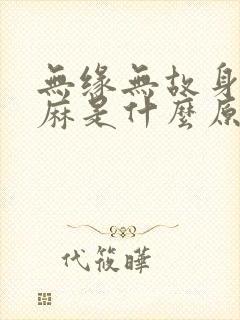 無緣無故身
麻是什麼原
代筱曄